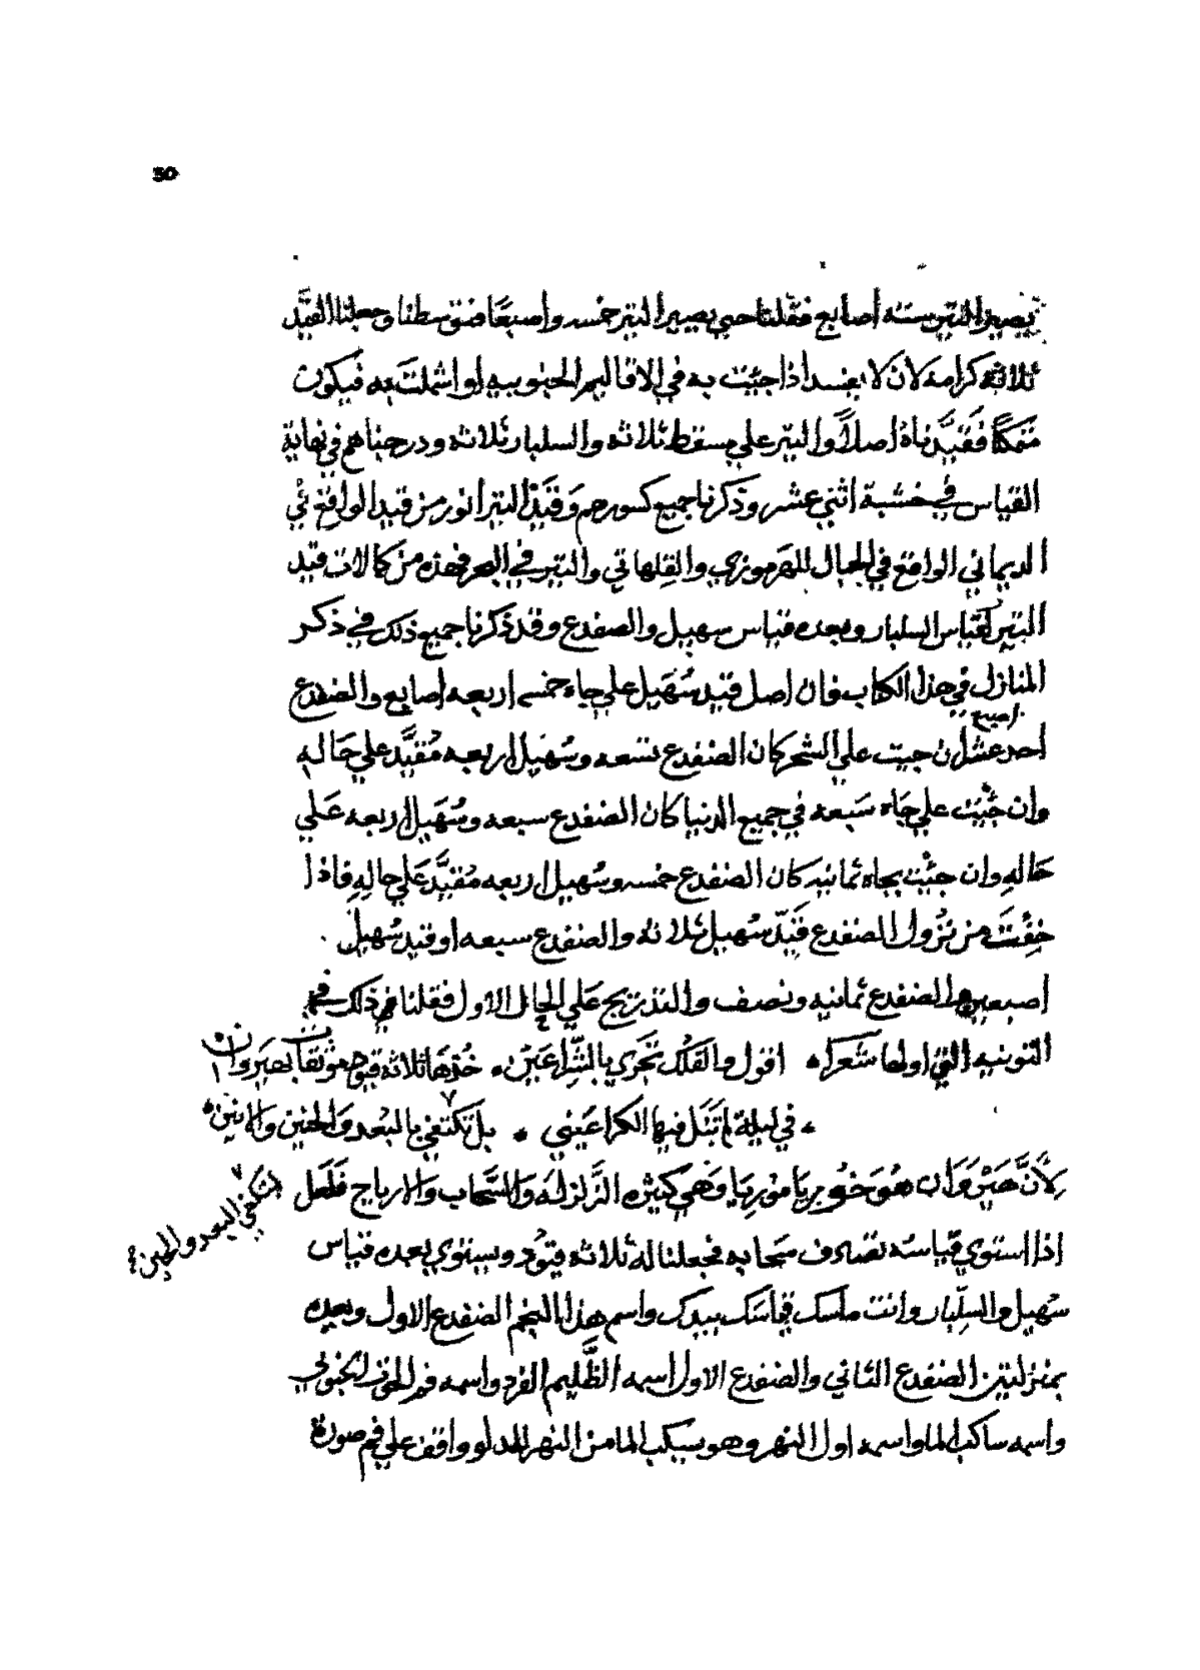 50
يصير التير ستة اصابع فقلنا حتي يصير التير خمسه واصبعا فتوسطنا وجعلنا القيد
ثلاثة كرامة لان لا يفسد اذا جيت به في الاقاليم الجنوبيه او اشملت به فيكون
فقيدناه اصلا والتير علي مسقط ثلاثه والسلبار ثلاثه ودرجناهم في نهاية
القياس في خشبة اثني عشر وذكرنا جميع كسورهم وقيد التير انور من قيد الواقع في
الديماني الواقع في الجبال للهرموزي والقلهاتي والتير في البحر فهذه من كمالات قيد
التير لقياس السلبار وبعده قياس سهيل والضفدع وقد ذكرنا جميع ذلك في ذكر
المنازل في هذا الكتاب فان اصل قيد سهيل علي جاه خمسه اربعه اصابع والضفدع
اصبع
احد عشر ان جيت علي الشحر كان الضفدع تسعه وسهيل اربعه مقيد علي حاله
وان جئت علي جاه سبعه في جميع الدنيا كان الضفدع سبعه وسهيل اربعه علي
حاله وان جئت بجاه ثمانيه كان الضفدع خمسه وسهيل اربعه مقيد علي حاله فاذا
خفت من نزول الضفدع قيد سهيل ثلاثه والضفدع سبعه او قيد سهيل
اصبعين والضفدع ثمانيه ونصف والتدريج علي الحال الاول فقلنا في ذلك في
النونيه التي اولها شعرا اقول والفلك تجري بالشراعين خذها ثلاثة قيود موثقا بهيروان
في ليلة لم تنل فيها الكرا عيني بل تكتفي بالبعد والحنين والاينين
لان هيروان هو خوريا موريا وهي كثيره الزلزله والسحاب والارياح فلعل
لنكفي البعد والبين
اذا استوي قياسه تصادف سحابه فجعلنا له ثلاثه قيود ويستوي بعده قياس
سهيل والسلبار وانت ماسك قياسك بيدك واسم هذا النجم الضفدع الاول وبعده
بمنزلتين الضفدع الثاني والضفدع الاول اسمه الظليم الفرد واسمه فم الحوت الجنوبي
واسمه ساكب الما واسمه اول النهر وهو يسكب الما من النهر للدلو واقف علي فم صورة